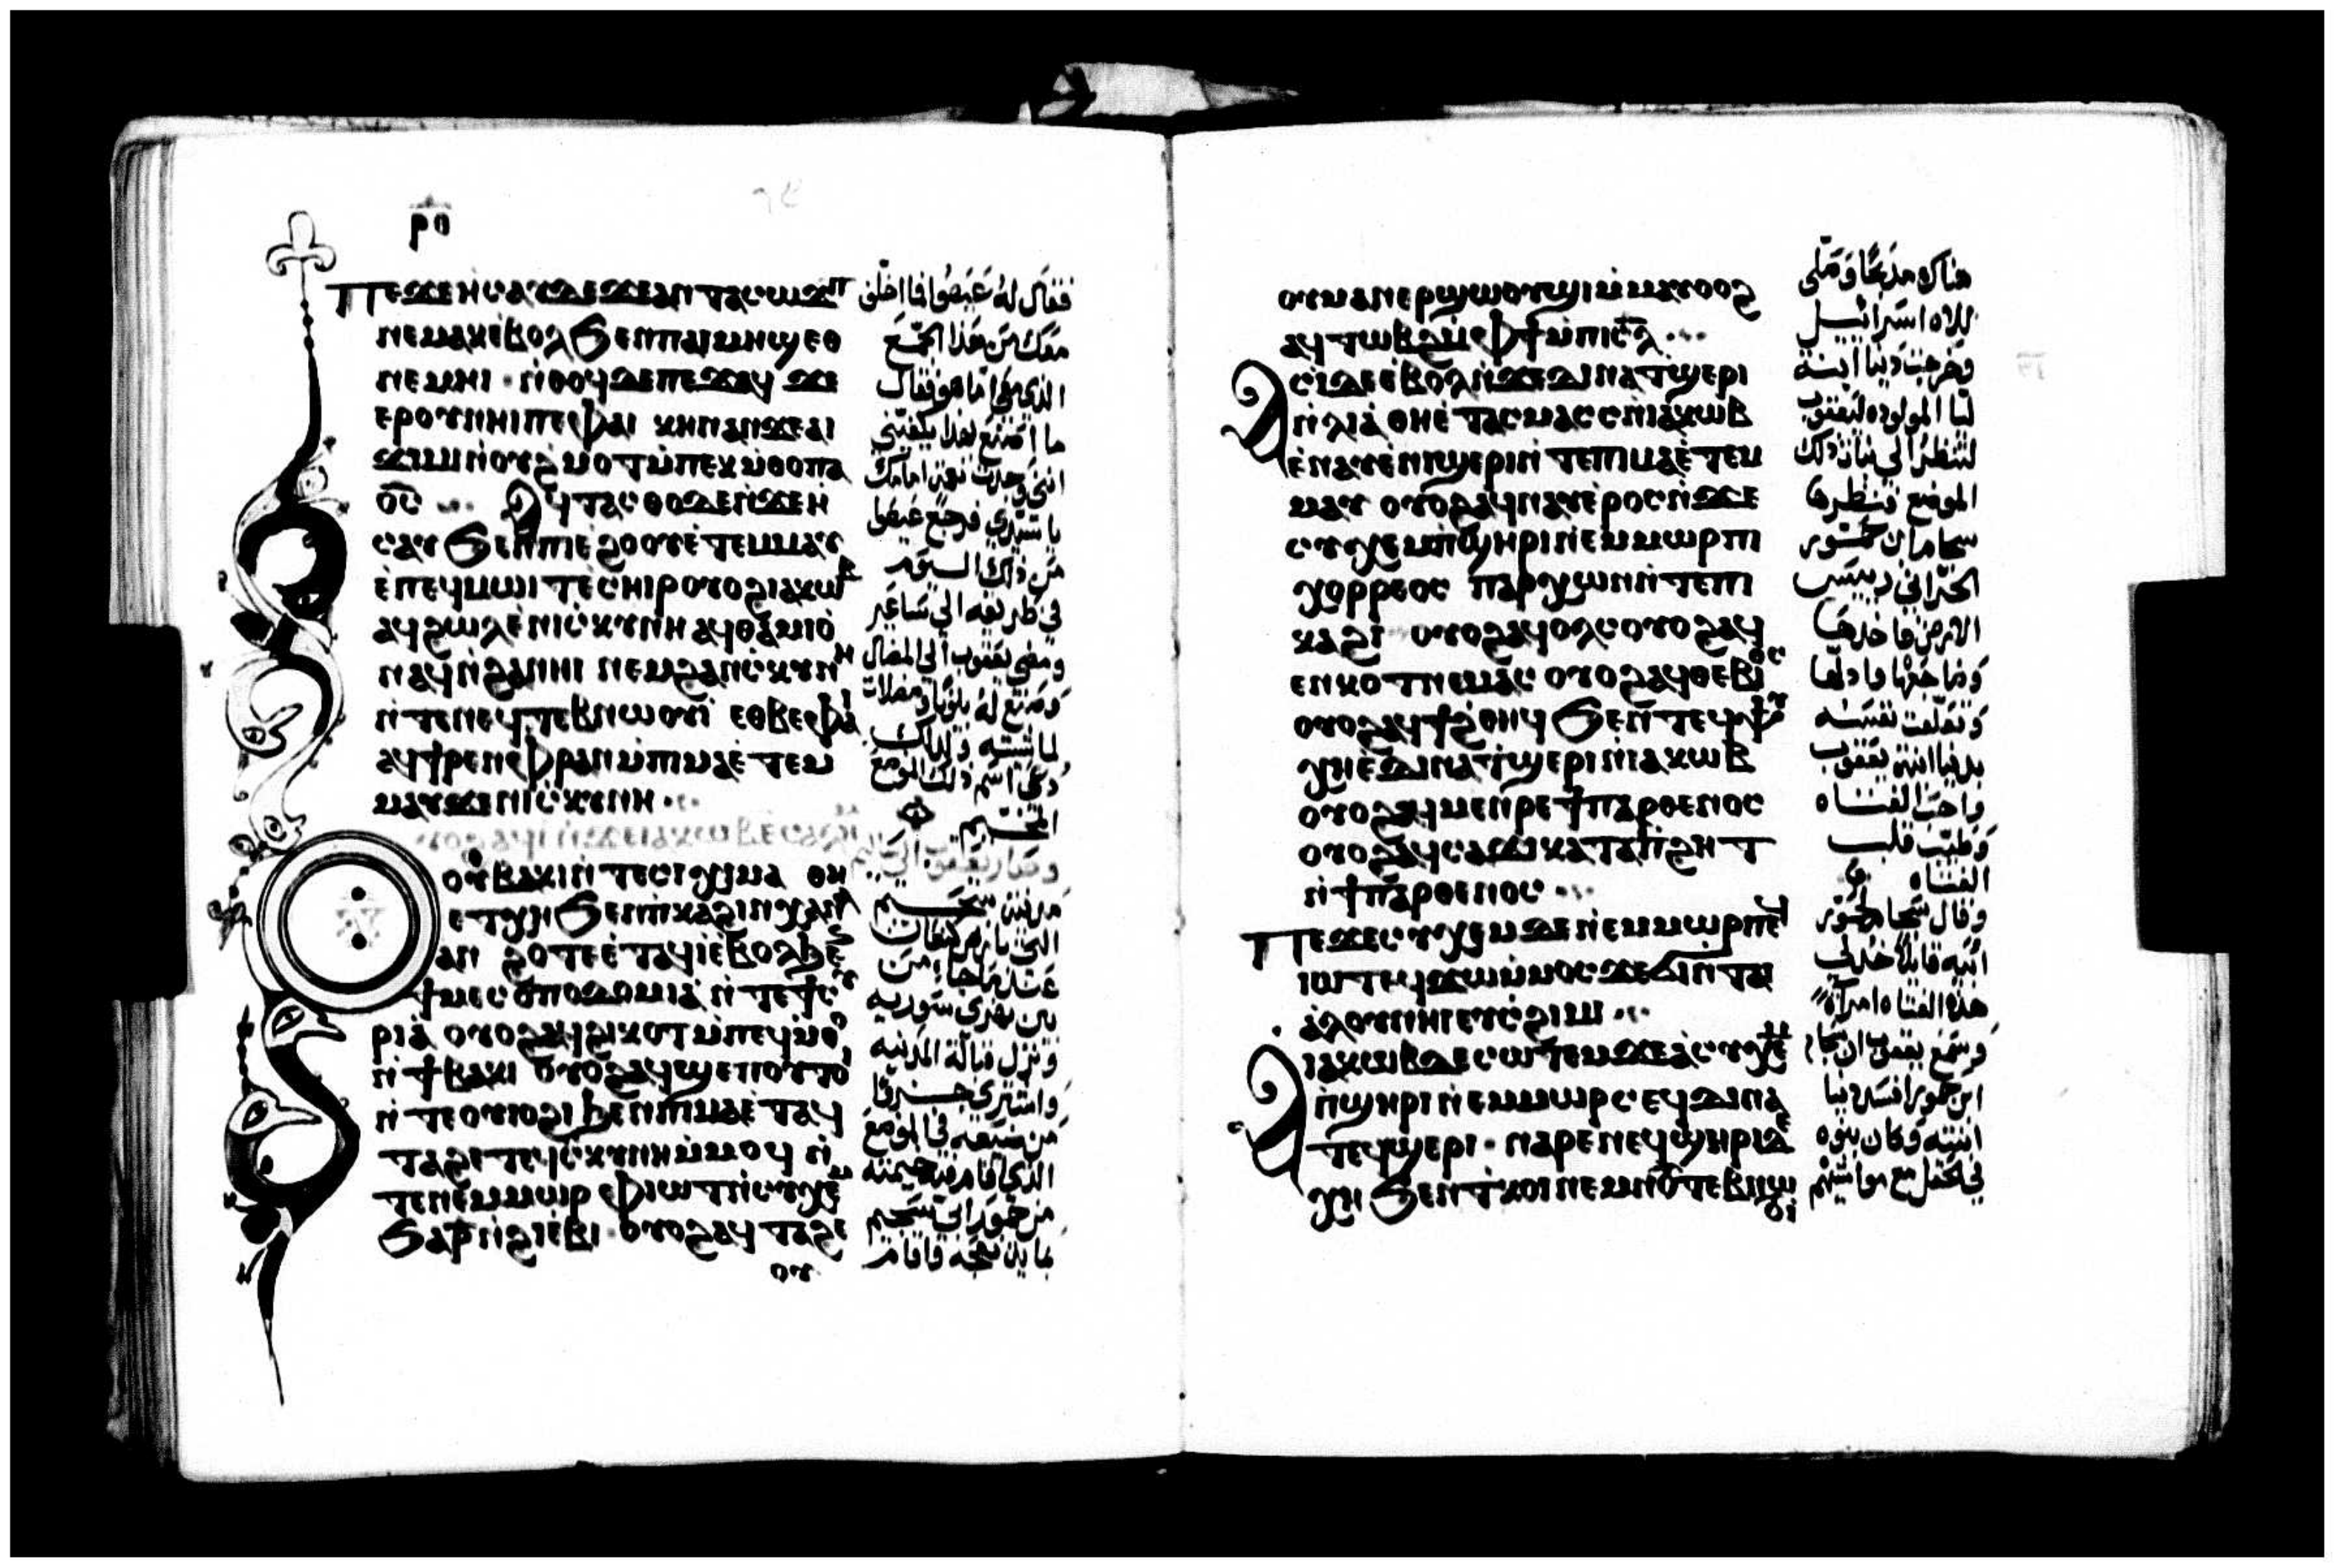 ⲣⲟ
ⲡⲉϫⲉ ⲏⲥⲁⲩ ⲇⲉ ϫⲉ ⲁⲛ ⲧⲁⲥⲱϫⲡ
ⲛⲉⲙⲁⲕ ⲉⲃⲟⲗ ϧⲉⲛ ⲡⲁⲓⲙⲏϣ ⲉⲑ
ⲛⲉⲙⲏⲓ ⲛⲑⲟϥ ⲇⲉ ⲡⲉϫⲁϥ ϫⲉ
ⲉⲣⲟⲩ ⲛⲏⲓ ⲡⲉ ⲫⲁⲓ ⲕⲏⲛ ⲁⲛ ϫⲉ ⲁⲓ
ϫⲓⲙⲓ ⲛⲟⲩϩⲙⲟⲧ ⲙⲡⲉⲕⲙⲑⲟ ⲡⲁ
ⲟⲥ ⲁϥⲧⲁⲥⲑⲟ ⲇⲉ ⲛϫⲉ ⲏ
ⲥⲁⲩ ϧⲉⲛ ⲡⲓⲉϩⲟⲟⲩ ⲉⲧⲉⲙⲙⲁⲩ
ⲉⲡⲉϥⲙⲱⲓⲧ ⲉⲥⲏⲓⲣ ⲟⲩⲟϩ ⲓⲁⲕⲱⲃ
ⲁϥϩⲱⲗ ⲉⲛⲓⲥⲕⲩⲛⲏ ⲁϥⲑⲁⲙⲓⲟ
ⲛⲁϥ ⲛϩⲁⲛⲏⲓ ⲛⲉⲙ ϩⲁⲛⲥⲕⲩⲛⲏ
ⲛⲧⲉ ⲛⲉϥⲧⲉⲃⲛⲱⲟⲩⲓ ⲉⲑⲃⲉ ⲫⲁⲓ
ⲁϥϯⲣⲉⲛ ⲫⲣⲁⲛ ⲙⲡⲓⲙⲁ ⲉⲧⲉⲙ
ⲙⲁⲩ ϫⲉ ⲛⲓⲥⲕⲩⲛⲏ
ⲟⲩⲟϩ ⲁϥⲓ ⲛϫⲉ ⲓⲁⲕⲱⲃ ⲉⲥⲁⲗⲏⲙ
ⲟⲩⲃⲁⲕⲓ ⲛⲧⲉ ⲥⲓⲕⲓⲙⲁ ⲑⲏ
ⲉⲧⲭⲏ ϧⲉⲛ ⲡⲕⲁϩⲓ ⲛⲭⲁⲛⲁ
ⲁⲛ ϩⲟⲧⲉ ⲉⲧⲁϥⲓ ⲉⲃⲟⲗ ϧⲉⲛ
ϯⲙⲉⲥⲟⲡⲟⲇⲟⲙⲓⲁ ⲛⲧⲉ ϯⲥⲩ
ⲣⲓⲁ ⲟⲩⲟϩ ⲁϥϩⲓⲕⲟⲧ ⲙⲡⲉϥⲙⲑⲟ
ⲛϯⲃⲁⲕⲓ ⲟⲩⲟϩ ⲁϥϣⲉⲡ ⲟⲩⲧⲟⲓ
ⲛⲧⲉ ⲟⲩⲓⲟϩⲓ ϧⲉⲛ ⲡⲓⲙⲁ ⲉⲧⲁϥ
ⲧⲁϩⲉ ⲧⲉϥⲥⲕⲩⲛⲏ ⲙⲙⲟϥ ⲛ
ⲧⲉⲛ ⲉⲙⲙⲱⲣ ⲫⲓⲱⲧ ⲛⲥⲩⲭⲉⲙ
ϧⲁ ⲣ ⲛϩⲓⲉⲃⲓ ⲟⲩⲟϩ ⲁϥⲧⲁϩⲉ
ⲟⲩ
فقال له عيصوا فانا اخلف
معك من هذا الجمع
الذي معي اما هو فقال
ما اصنع بهذا يكفيني
اني وجدت نعمة امامك
يا سيدي فرجع عيصوا
من ذلك اليوم
في طريقه الي ساعير
ومضي يعقوب الي المضال
وصنع له بيوتا ومضلات
لماشيته ولذلك
دعي اسم ذلك الموضع
المضال
وصار يعقوب الي
مدينة شخيم
التي بارض كنعان
عند ما جا من
بين نهري سورية
ونزل قبالة المدينة
واشتري جزءا
من ضيعه في الموضع
الذي اقام فيه خيمته
من حمور ابي شخيم
بماية نعجه فاقام
ⲟⲩⲙⲁ ⲛⲉⲣϣⲱⲟⲩϣⲓ ⲙⲙⲁⲩ ⲟⲩⲟϩ
ⲁϥⲧⲱⲃϩ ⲙⲫϯ ⲙⲡⲓⲥⲗ
ⲁⲥⲓ ⲇⲉ ⲉⲃⲟⲗ ⲛϫⲉ ⲇⲓⲛⲁ ⲧϣⲉⲣⲓ
ⲛⲗⲓⲁ ⲑⲏ ⲉⲧⲁⲥⲙⲁⲥⲥ ⲛⲓⲁⲕⲱⲃ
ⲉⲛⲁⲩ ⲉⲛⲓϣⲉⲣⲓ ⲛⲧⲉ ⲡⲓⲙⲁ ⲉⲧⲉⲙ
ⲙⲁⲩ ⲟⲩⲟϩ ⲁϥⲛⲁⲩ ⲉⲣⲟⲥ ⲛϫⲉ
ⲥⲩⲭⲉⲙ ⲡϣⲏⲣⲓ ⲛⲉⲙⲙⲱⲣ ⲡⲓ
ⲭⲟⲣⲣⲉⲟⲥ ⲡⲁⲣⲭⲱⲛ ⲛⲧⲉ ⲡⲓ
ⲕⲁϩⲓ ⲟⲩⲟϩ ⲁϥⲟⲗⲥ ⲟⲩⲟϩ ⲁϥ
ⲉⲛⲕⲟⲧ ⲛⲉⲙⲁⲥ ⲟⲩⲟϩ ⲁϥⲑⲉⲃⲓⲟⲥ
ⲟⲩⲟϩ ⲁϥϯϩⲑⲏϥ ϧⲉⲛ ⲧⲉϥⲯⲩ
ⲭⲏ ⲉⲇⲓⲛⲁ ⲧϣⲉⲣⲓ ⲛⲓⲁⲕⲱⲃ
ⲟⲩⲟϩ ⲁϥⲙⲉⲛⲣⲉ ϯⲡⲁⲣⲑⲉⲛⲟⲥ
ⲟⲩⲟϩ ⲁϥⲥⲁϫⲓ ⲕⲁⲧⲁ ⲡϩⲏⲧ
ⲛϯⲡⲁⲣⲑⲉⲛⲟⲥ
ⲡⲉϫⲉ ⲥⲩⲭⲉⲙ ⲇⲉ ⲛⲉⲙⲙⲱⲣ ⲡⲉϥ
ⲓⲱⲧ ⲉϥϫⲱ ⲙⲙⲟⲥ ϫⲉ ϭⲓ ⲛⲧⲁⲓ
ⲁⲗⲟⲩ ⲛⲏⲓ ⲉⲩⲥϩⲓⲙⲓ
ⲓⲁⲕⲱⲃ ⲇⲉ ⲥⲱⲧⲉⲙ ϫⲉ ⲁ ⲥⲩⲭⲉⲙ
ⲡϣⲏⲣⲓ ⲛⲉⲙⲙⲱⲣ ⲥⲉϥ ⲇⲓⲛⲁ
ⲧⲉϥϣⲉⲣⲓ ⲛⲁⲣⲉ ⲛⲉϥϣⲏⲣⲓ ⲇⲉ
ⲭⲏ ϧⲉⲛ ⲧⲕⲟⲓ ⲛⲉⲙ ⲛⲟⲩⲧⲉⲃⲛⲱ
ⲟⲩⲓ
هناك مذبحا وصلي
للاه اسرائيل
وخرجت دينا ابنة
ليا المولوده ليعقوب
لتنظر الي بنات ذلك
الموضع فنظرها
شخام ابن حمور
الحوراني رئيس
الارض فاخذها
وضاجعها واذلها
وتعلقت نفسه
بدينا ابنة يعقوب
واحب الفتاه
وطيب قلب
الفتاه
وقال شخام لحمور
ابيه قايلا خذ لي
هذه الفتاه امراة
وسمع يعقوب ان شخام
ابن حمور افسد دينا
ابنته وكان بنوه
في الحقل مع مواشيهم